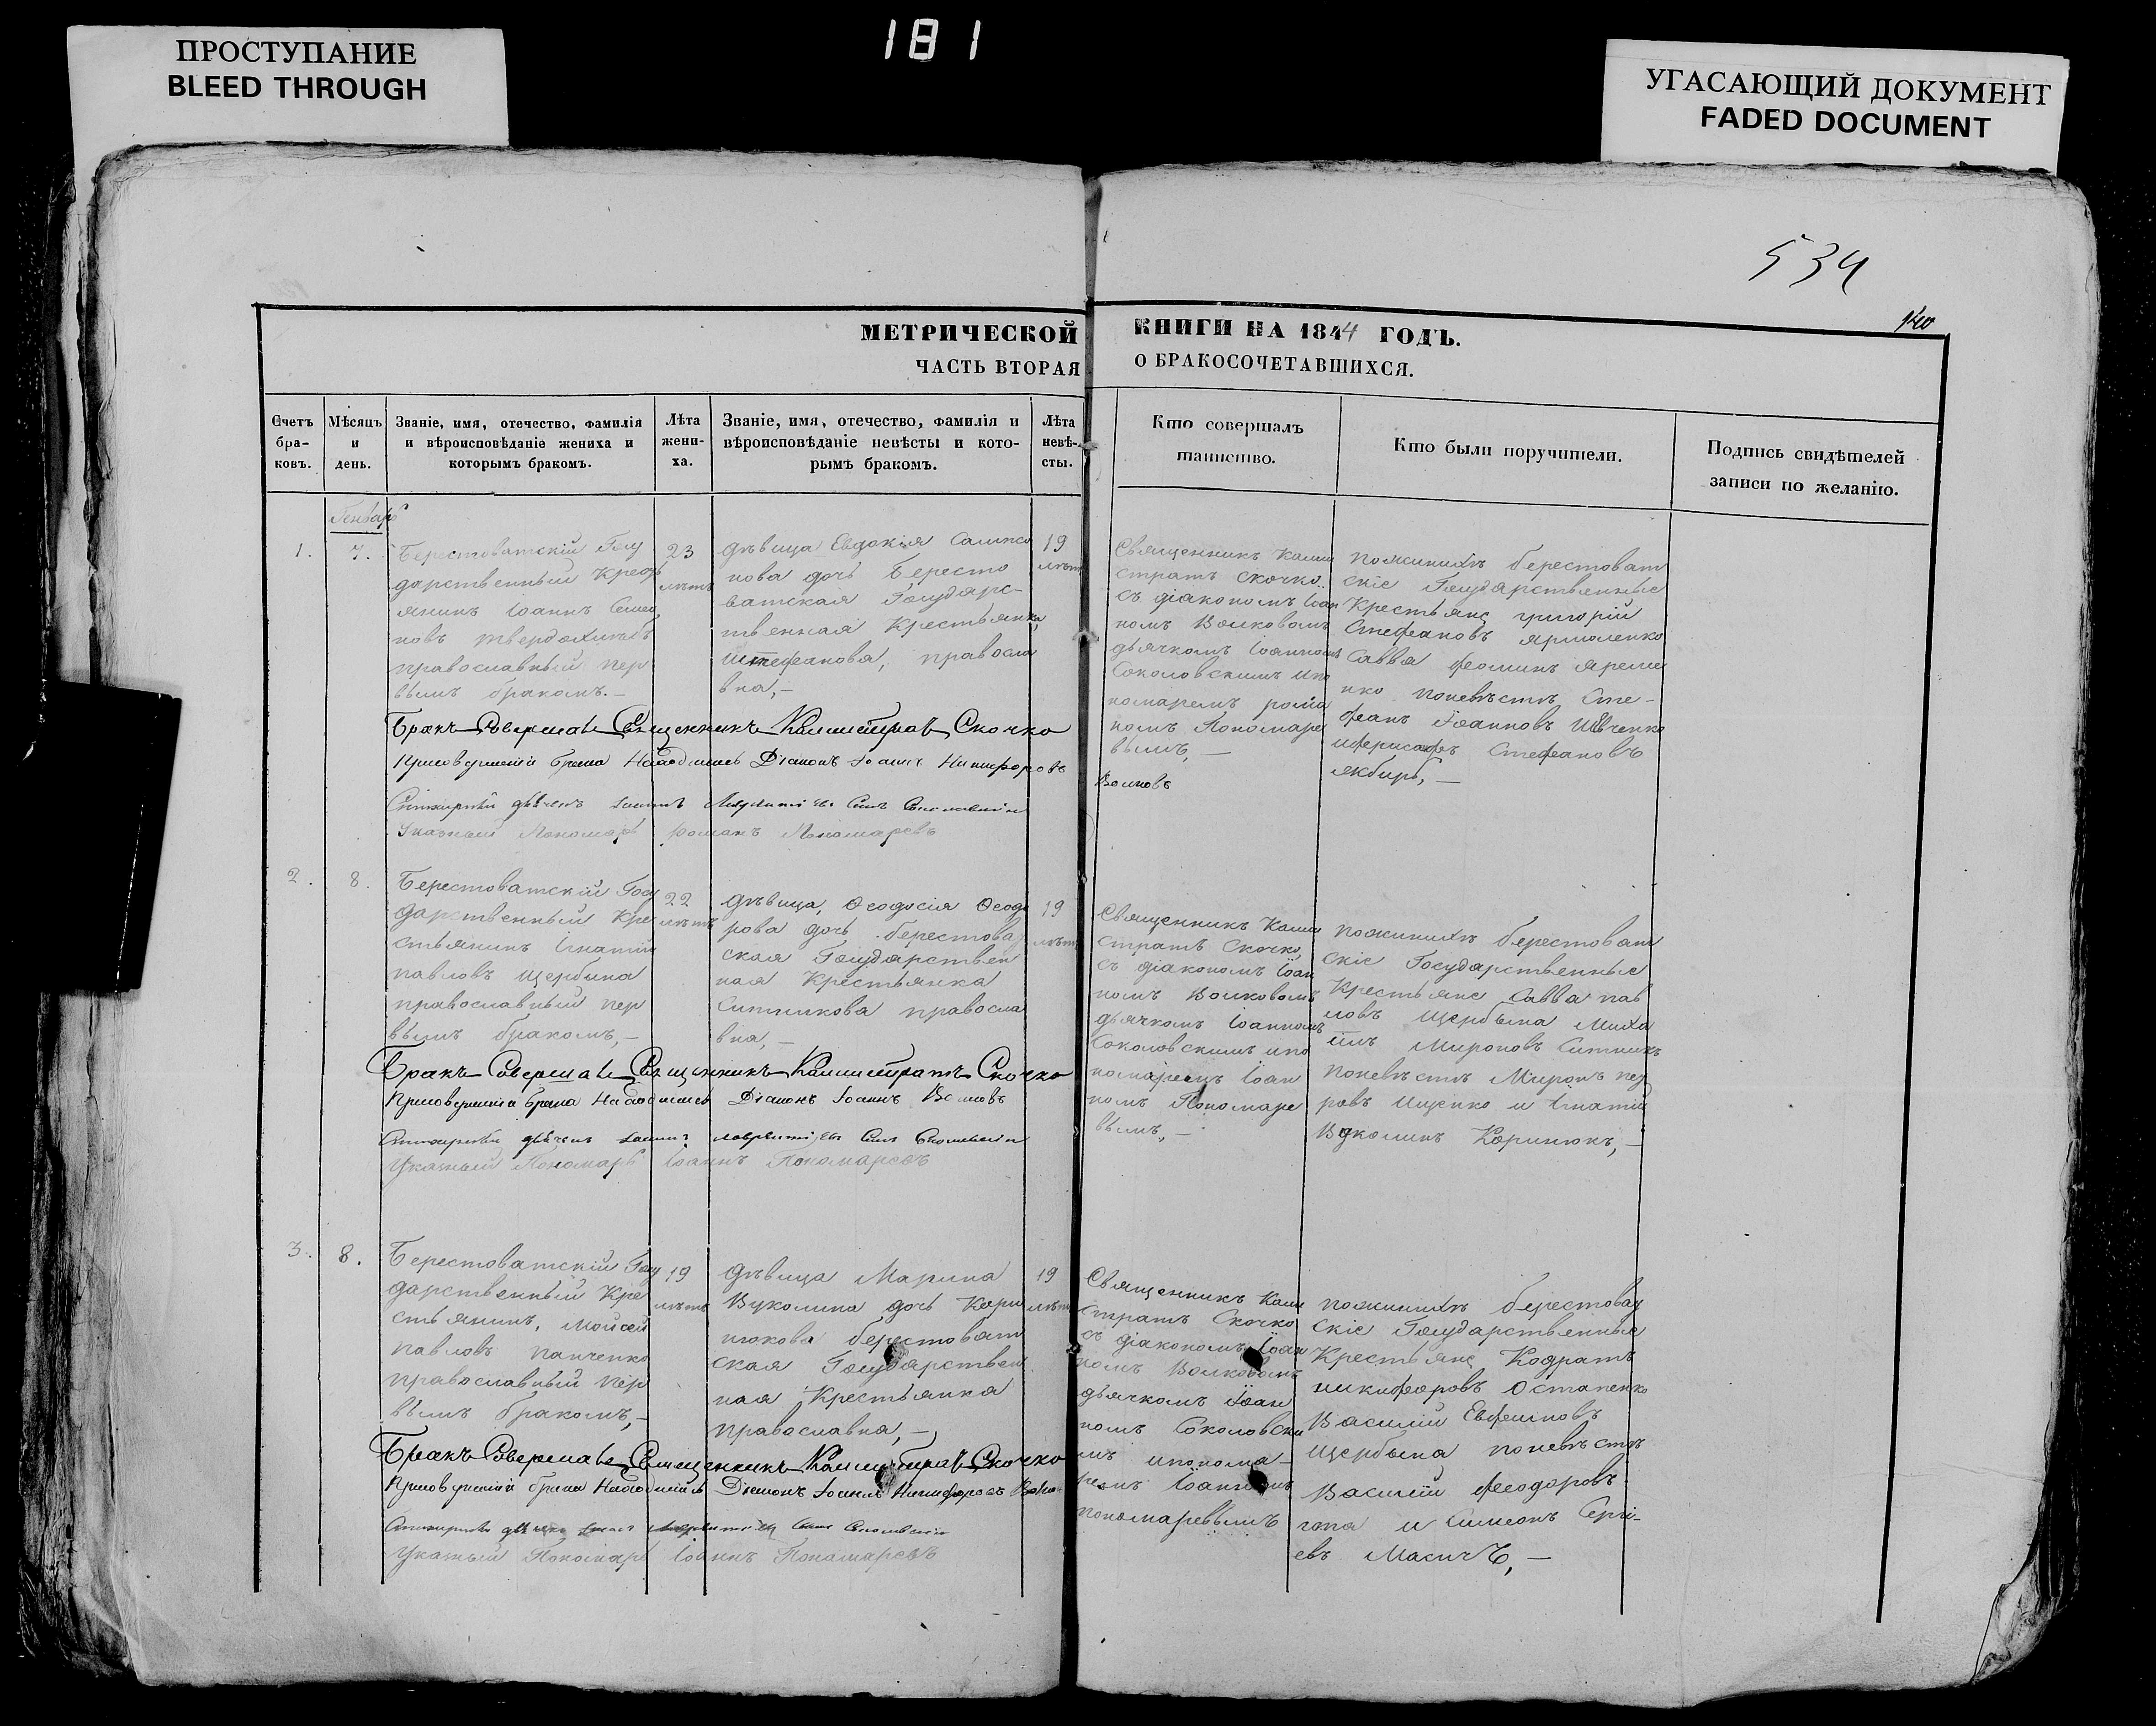 ПРОСТУПАНИЕ
BLEED THROUGH
181
УГАСАЮЩИЙ ДОКУМЕНТ
FADED DOCUMENT
534
140
МЕТРИЧЕСКОЙ КНИГИ НА 1844 ГОДЪ.
ЧАСТЬ ВТОРАЯ О БРАКОСОЧЕТАВШИХСЯ.
Счетъ
бра-
ковъ.
Мѣсяцъ
и
день.
Званіе, имя, отечество, фамилія
и вѣроисповѣданіе жениха и
которымъ бракомъ.
Лѣта
жени-
ха.
Званіе, имя, отечество, фамилія и
вѣроисповѣданіе невѣсты и кото-
рымъ бракомъ.
Лѣта
невѣ-
сты.
Кто совершалъ
таинство.
Кто были поручители.
Подпись свидѣтелей
записи по желанію.
Генварь
1.
7.
Берестоватскій Госу
дарственный Кресть
янинъ Іоаннъ
новъ
православный пер
вымъ бракомъ.—
23
лѣтъ
дѣвица Евдокія
нова дочь Бересто
ватская Государс-
твенная Крестьянка,
Штефанова, правосла
вна,—
19
лѣтъ
Священникъ Калли
стратъ Скочко
съ діакономъ Іоан
номъ Волковымъ
дьячкомъ Іоанномъ
Соколовскимъ ипо
номаремъ рома
номъ Пономаре
вымъ,—
Волковъ
пожинихѣ берестоват
скіе Государственные
Крестьяне григорій
Стефановъ ярмоленко
Савва Фоминъ яреме
нко поневѣстѣ Сте-
фанъ Іоанновъ Шевченко
Стефановъ
—
Бракъ Совершалъ Священникъ Каллистратъ Скочко
Присовершеніи брака Находился Діаконъ Іоаннъ Никифоровъ
дьячекъ Іоаннъ
Указный Пономарь романъ Пономаревъ
2.
8.
Берестоватскій Госу
дарственный Кре
стьянинъ Игнатій
павловъ Щербина
православный пер
вымъ бракомъ,—
22
лѣтъ
дѣвица, Ѳеодосія Ѳеодо
рова дочь берестоват
ская Государствен
ная Крестьянка
Ситникова правосла
вна,—
19
лѣтъ
Священникъ Калли
стратъ Скочко,
съ діакономъ Іоан
номъ Волковымъ
дьячкомъ Іоанномъ
Соколовскимъ ипо
номаремъ Іоан
номъ Пономаре
вымъ,—
пожинихѣ берестоват
скіе Государственные
Крестьяне Савва пав
ловъ Щербына Миха
илъ Мироновъ Ситникъ
поневѣстѣ Миронъ пет
ровъ Ищенко и Игнатій
Вуколинъ Коринюкъ,—
Бракъ Совершалъ Священникъ Каллистратъ Скочко
Присовершеніи брака Находился Діаконъ Іоаннъ Волковъ
дьячекъ Іоаннъ
Указный Пономарь Іоаннъ Пономаревъ
3.
8.
Берестоватскій Госу
дарственный Кре
стьянинъ, Мойсей
павловъ панченко
православный пер
вымъ бракомъ,—
19
лѣтъ
дѣвица Марина
Вуколина дочь Кори
нюкова берестоват
ская Государствен
ная Крестьянка
православна,—
19
лѣтъ
Священникъ Калли
стратъ Скочко
съ діакономъ Іоан
номъ Волковымъ
дьячкомъ Іоан
номъ Соколовски
мъ ипонома-
ремъ Іоанномъ
пономаревымъ
пожинихѣ берестоват
скіе Государственные
Крестьяне Кодратъ
никифоровъ Остапенко
Василій Евфимовъ
Щербына поневѣстѣ
Василій феодоровъ
и Симеонъ Сергі-
евъ Масичъ,—
Бракъ Совершалъ Священникъ Каллистратъ Скочко
Присовершеніи брака Находился Діаконъ Іоаннъ Никифоровъ
дьячекъ Іоаннъ
Указный Пономарь Іоаннъ Пономаревъ